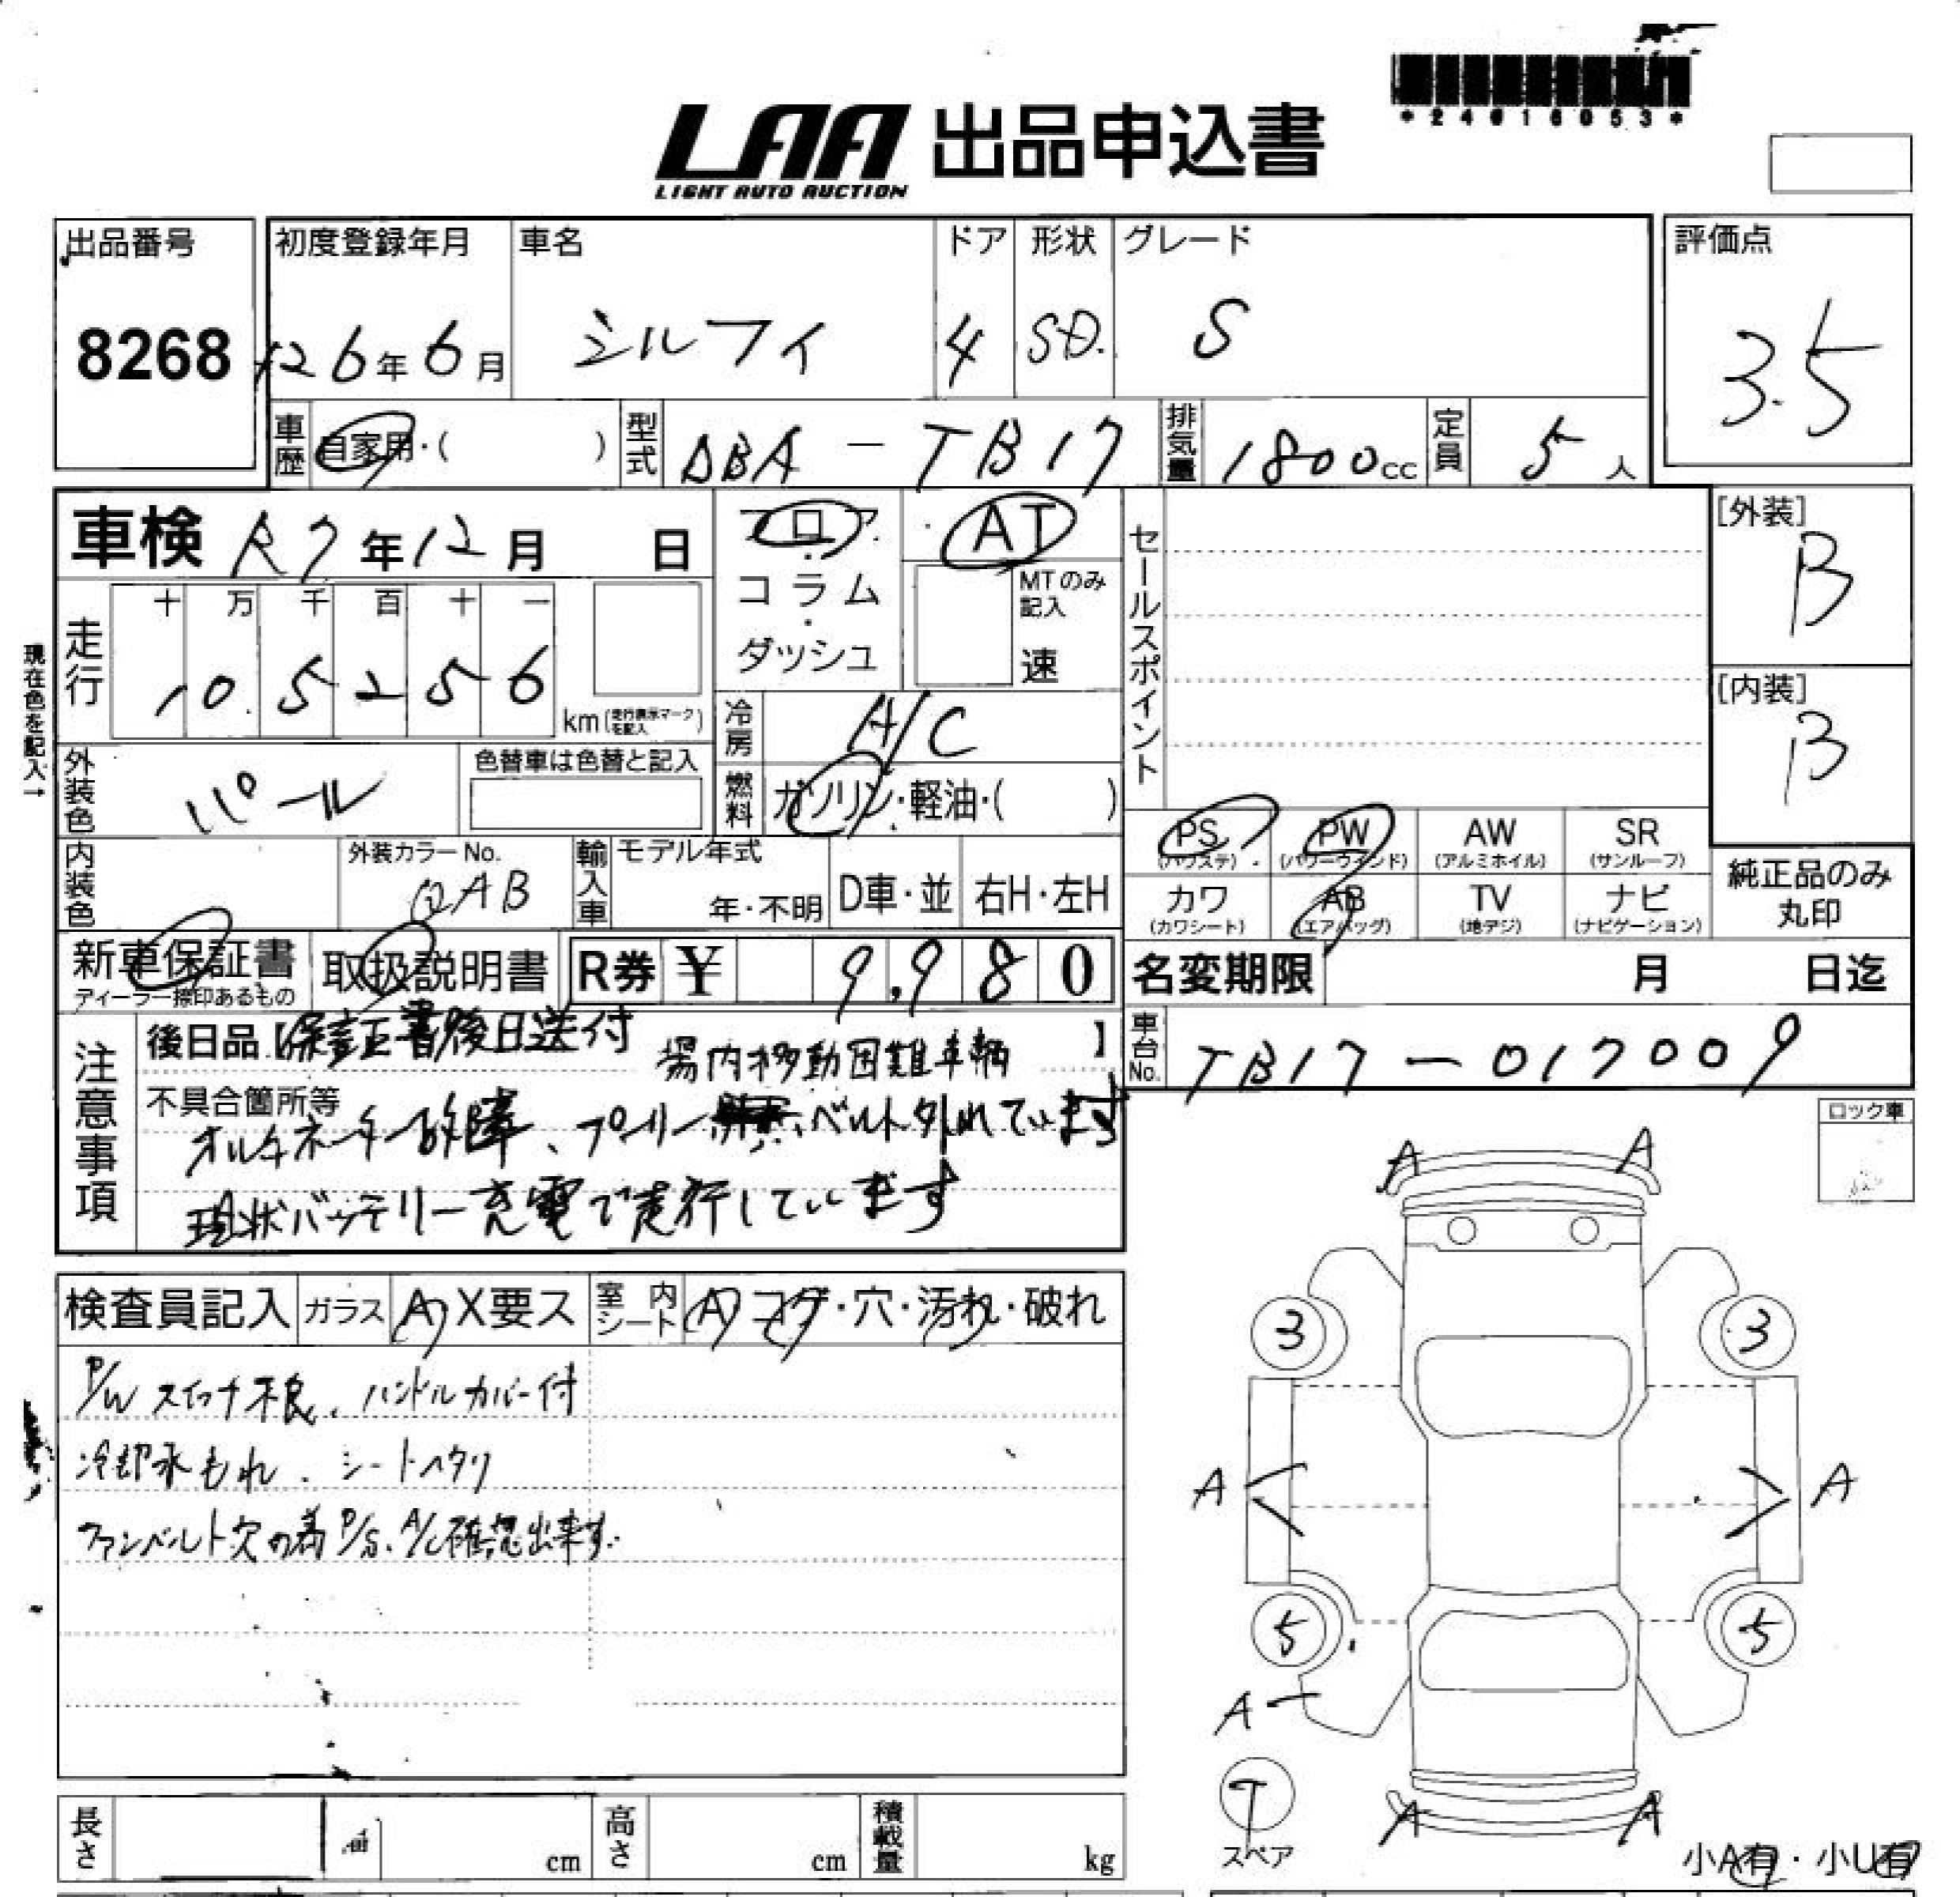 *24016053*
LAA 出品申込書
LIGHT AUTO AUCTION
出品番号
8268
初度登録年月
H26年6月
車名
シルフィ
ドア
4
形状
SD.
グレード
S
評価点
3.5
車歴
自家用・( )
型式
DBA-TB17
排気量
1800cc
定員
5人
車検 R7年12月 日
フロア・コラム・ダッシュ
AT
MTのみ記入
速
セールスポイント
[外装]
B
[内装]
B
現在色を記入→
走行
十 万 千 百 十 一
1 0 5 2 5 6
km(走行表示マークを記入)
冷房
A/C
外装色
パール
色替車は色替と記入
燃料
ガソリン・軽油・( )
内装色
外装カラーNo.
QAB
輸入車
モデル年式
年・不明
D車・並
右H・左H
PS
(パワステ)
PW
(パワーウィンド)
AW
(アルミホイル)
SR
(サンルーフ)
カワ
(カワシート)
AB
(エアバッグ)
TV
(地デジ)
ナビ
(ナビゲーション)
純正品のみ
丸印
新車保証書
ディーラー捺印あるもの
取扱説明書
R券 ¥ 9,980
名変期限 月 日迄
注意事項
後日品【保証書後日送付 場内移動困難車輌】
不具合箇所等
オルタネーター故障、プーリー ベルト外れています
現状バッテリー充電で走行しています
車台No.
TB17-017009
ロック車
検査員記入
ガラス
A X要ス
室内シート
A コゲ・穴・汚れ・破れ
P/W スイッチ不良、ハンドルカバー付
冷却水もれ、シートヘタリ
ファンベルト欠の為P/S、A/C確認出来ず.
A A
3 3
A A
5 5
A
T
スペア
A A
小A有・小U有
長さ
幅
cm
高さ
cm
積載量
kg